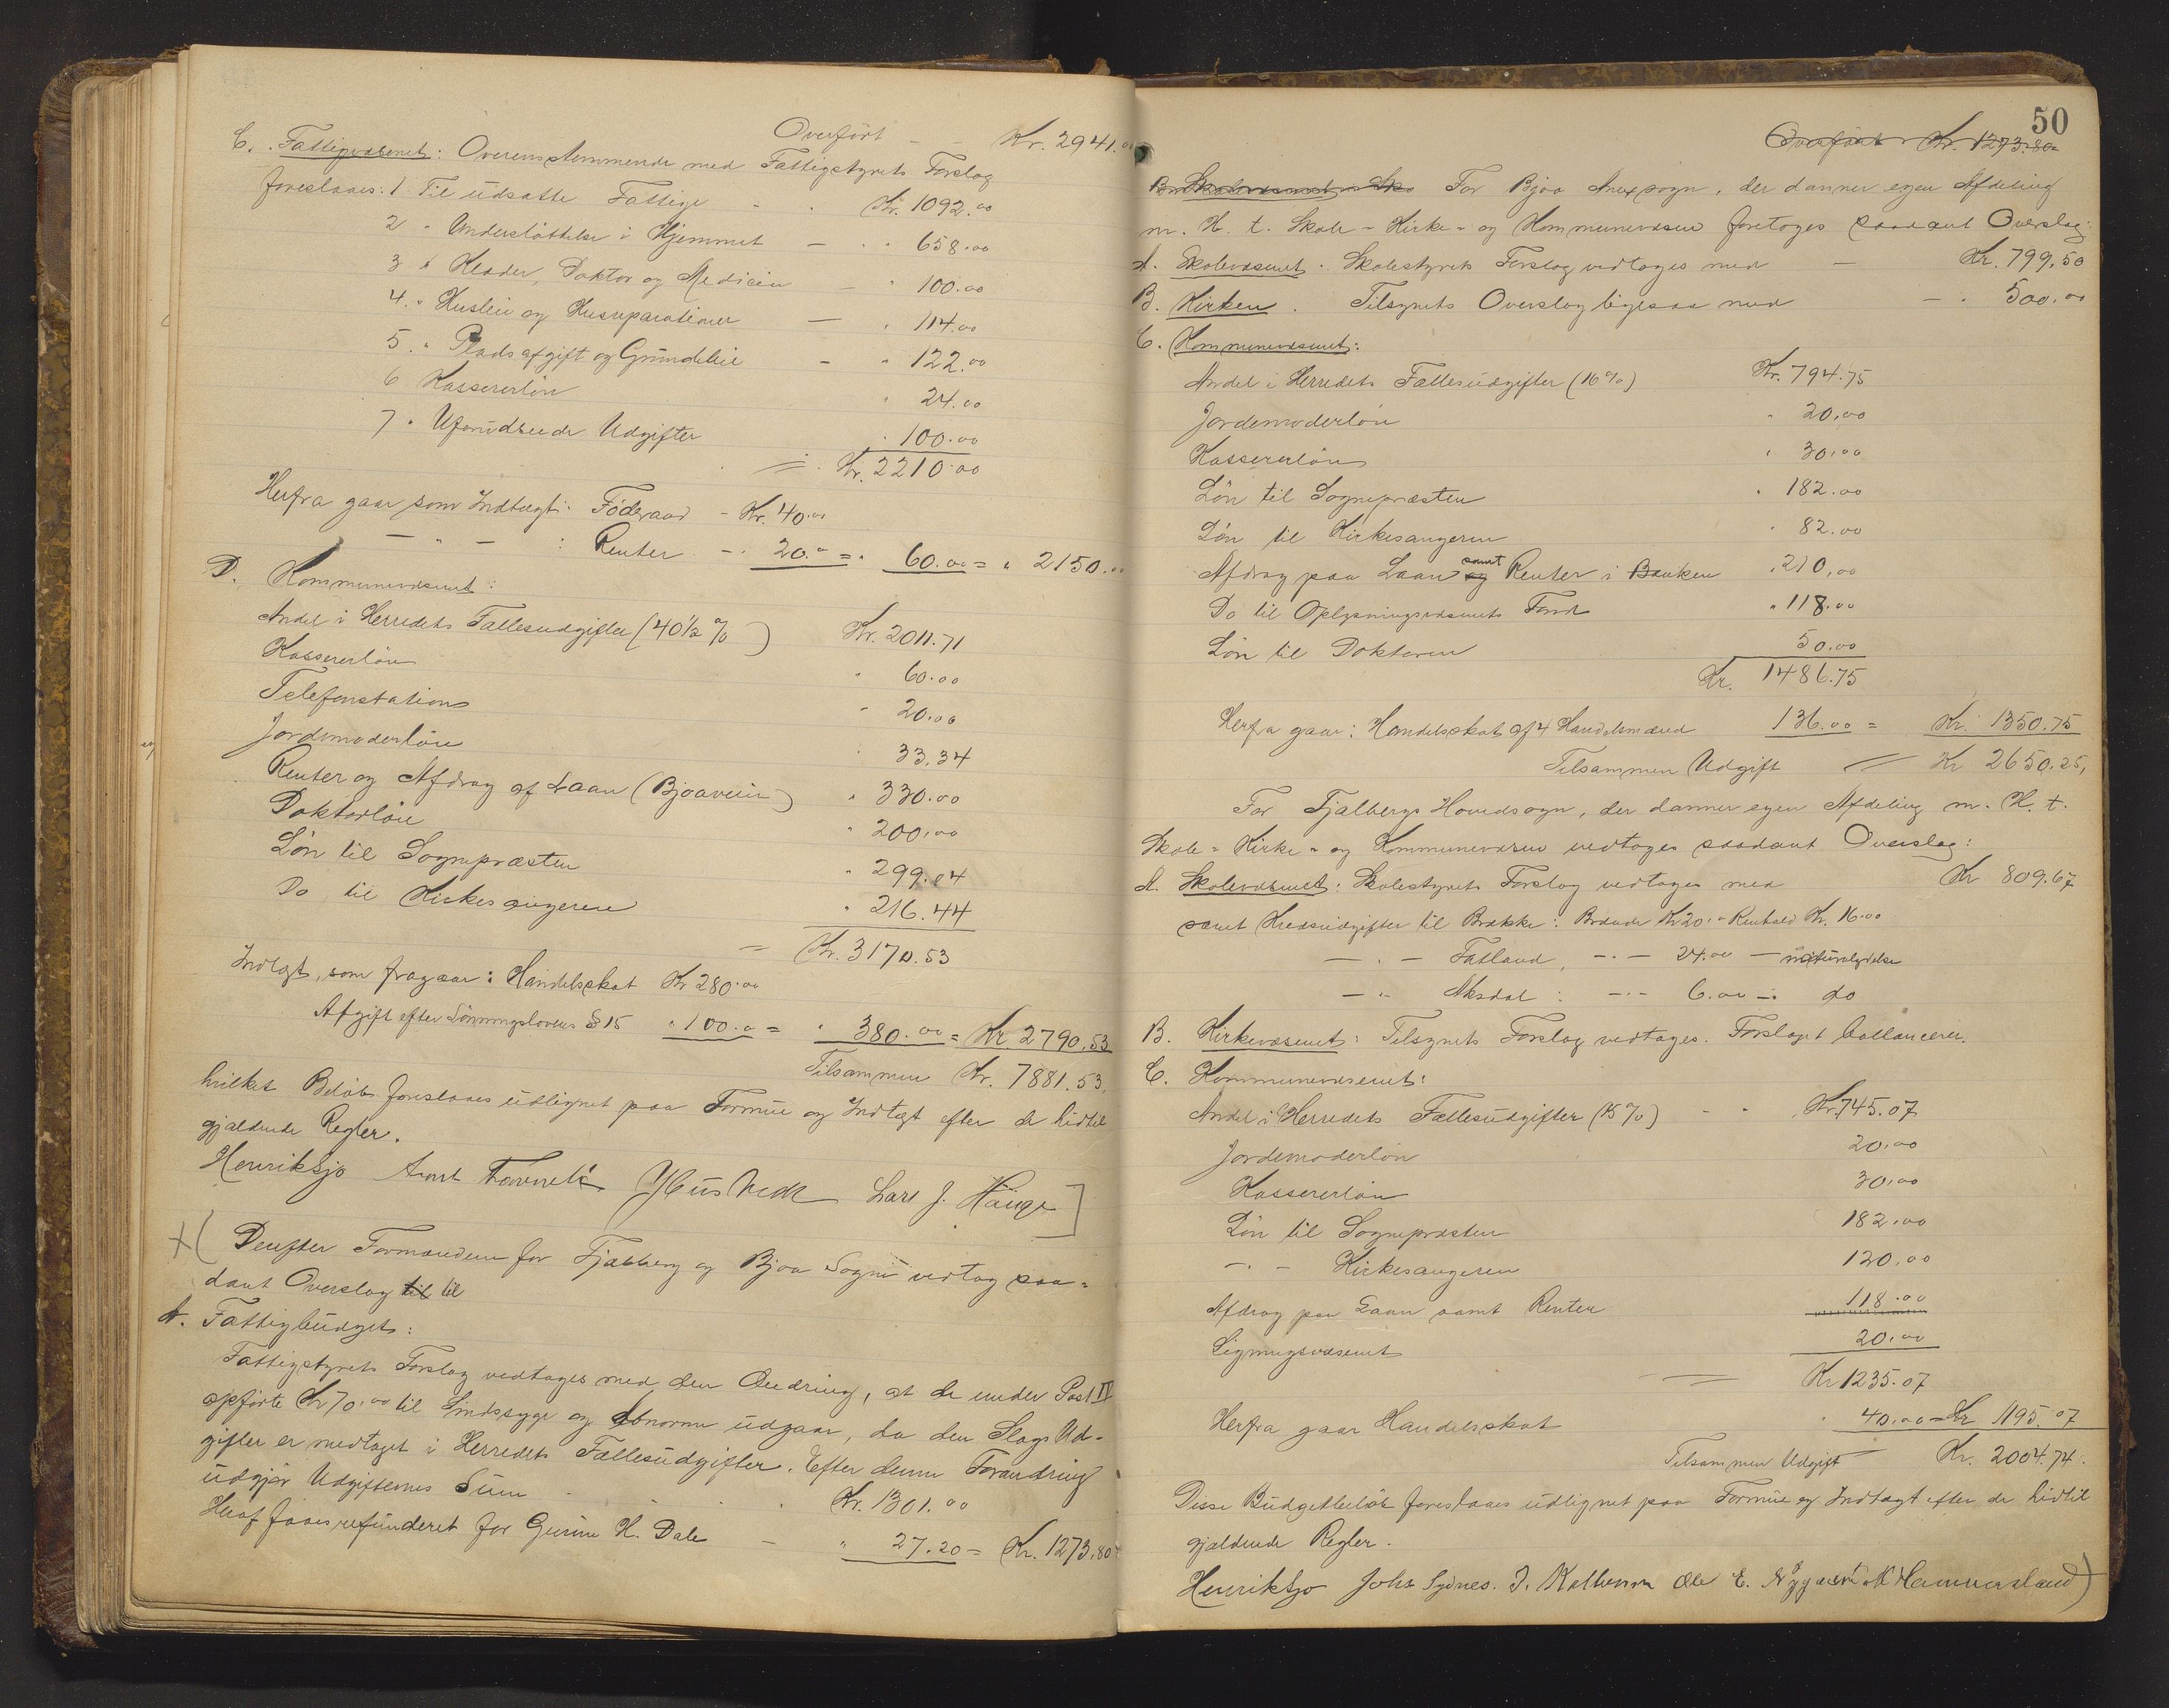 Overført - - Kr. 2941.00
C. Fattigvæsenet: Overensstemmende med Fattigstyrets Forslag
foreslaaes: 1 Til udsatte Fattige - - Kr. 1092.00
2 " Understøttelse i Hjemmet - " 658.00
3 " Klæder, Doktor og Medicin - " 100.00
4. " Husleie og Husreparationer - " 114.00
5. " Pladsafgift og Grundleie - " 122.00
6 Kassererløn " 24.00
7 " Uforudseede Udgifter " 100.00
= Kr. 2210.00
Herfra gaar som Indtægt: Føderaad - Kr. 40.00
- " - : Renter - " 20.00 = " 60.00 = " 2150.00
D. Kommunevæsenet:
Andel i Herredets Fællesudgifter (40½ %) Kr. 2011.71
Kassererløn " 60.00
Telefonstation - 20.00
Jordemoderløn " 33.34
Renter og Afdrag af Laan (Bjoaveien) " 330.00
Doktorløn " 200.00
Løn til Sognepræsten " 299.04
Do til Kirkesangeren " 216.44
= Kr. 3170.53
Indtægt, som fragaar: Handelsskat Kr 280.00
Afgift efter Lønningslovens § 15 " 100.00 = " 380.00 = Kr. 2790.53
Tilsammen Kr. 7881.53,
hvilket Beløb foreslaaes udlignet paa Formue og Indtægt efter de hidtil
gjældende Regler.
Henriksjø Lars J. Hauge ]
+( Derefter Formændene for Fjelberg og Bjoa Sogne vedtog saa-
dant Overslag til til
A. Fattigbudget:
Fattigstyrets Forslag vedtages med den Ændring, at de under Post II
opførte Kr 70.00 til Sindssyge og Abnorme udgaar, da den Slags Ud-
gifter er medtaget i Herredets Fællesudgifter. Efter denne Forandring
udgjør Udgifternes Sum - - - Kr. 1301.00
Heraf faaes refunderet for Gurine H. Dale - " 27.20 = Kr. 1273.80
50
Overført Kr. 1273.80
B Skolevæsenet Sko For Bjoa Anexsogn, der danner egen Afdeling
m. H. t. Skole- Kirke- og Kommunevæsen foretages saadant Overslag:
A. Skolevæsenet: Skolestyrets Forslag vedtages med - Kr. 799.50
B. Kirken. Tilsynets Overslag ligesaa med - " 500.00
C. Kommunevæsenet:
Andel i Herredets Fællesudgifter (16%) Kr. 794.75
Jordemoderløn " 20.00
Kassererløn " 30.00
Løn til Sognepræsten " 182.00
Løn til Kirkesangeren " 82.00
Afdrag paa Laan og samt Renter i Banken " 210.00
Do til Oplysningsvæsenets Fond " 118.00
Løn til Doktoren 50.00
Kr. 1486.75
Herfra gaar: Handelsskat af 4 Handelsmænd 136.00 = Kr. 1350.75
Tilsammen Udgift = Kr 2650.25,
For Fjelbergs Hovedsogn, der danner egen Afdeling m. H. t.
Skole- Kirke- og Kommunevæsen vedtages saadant Overslag:
A. Skolevæsenet: Skolestyrets Forslag vedtages med Kr 809.67
samt Kredsudgifter til Brække: Brænde Kr 20.00 Renhold Kr. 16.00
- " - Fatland, - " - 24.00 - naturalydelse
- " - Aksdal: - " - 6.00 - do
B. Kirkevæsenet: Tilsynets Forslag vedtages. Forslaget ballancerer.
C. Kommunevæsenet:
Andel i Herredets Fællesudgifter (15%) - - Kr. 745.07
Jordemoderløn 20.00
Kassererløn 30.00
Løn til Sognepræsten 182.00
- " - Kirkesangeren 120.00
Afdrag paa Laan samt Renter 118.00
Ligningsvæsenet 20.00
= Kr 1235.07
Herfra gaar Handelsskat " 40.00 = Kr 1195.07
Tilsammen Udgift Kr. 2004.74.
Disse Budgetbeløb foreslaaes udlignet paa Formue og Indtægt efter de hidtil
gjældende Regler.
Henriksjø Johs Sydnes. Ole E. Hammersland)